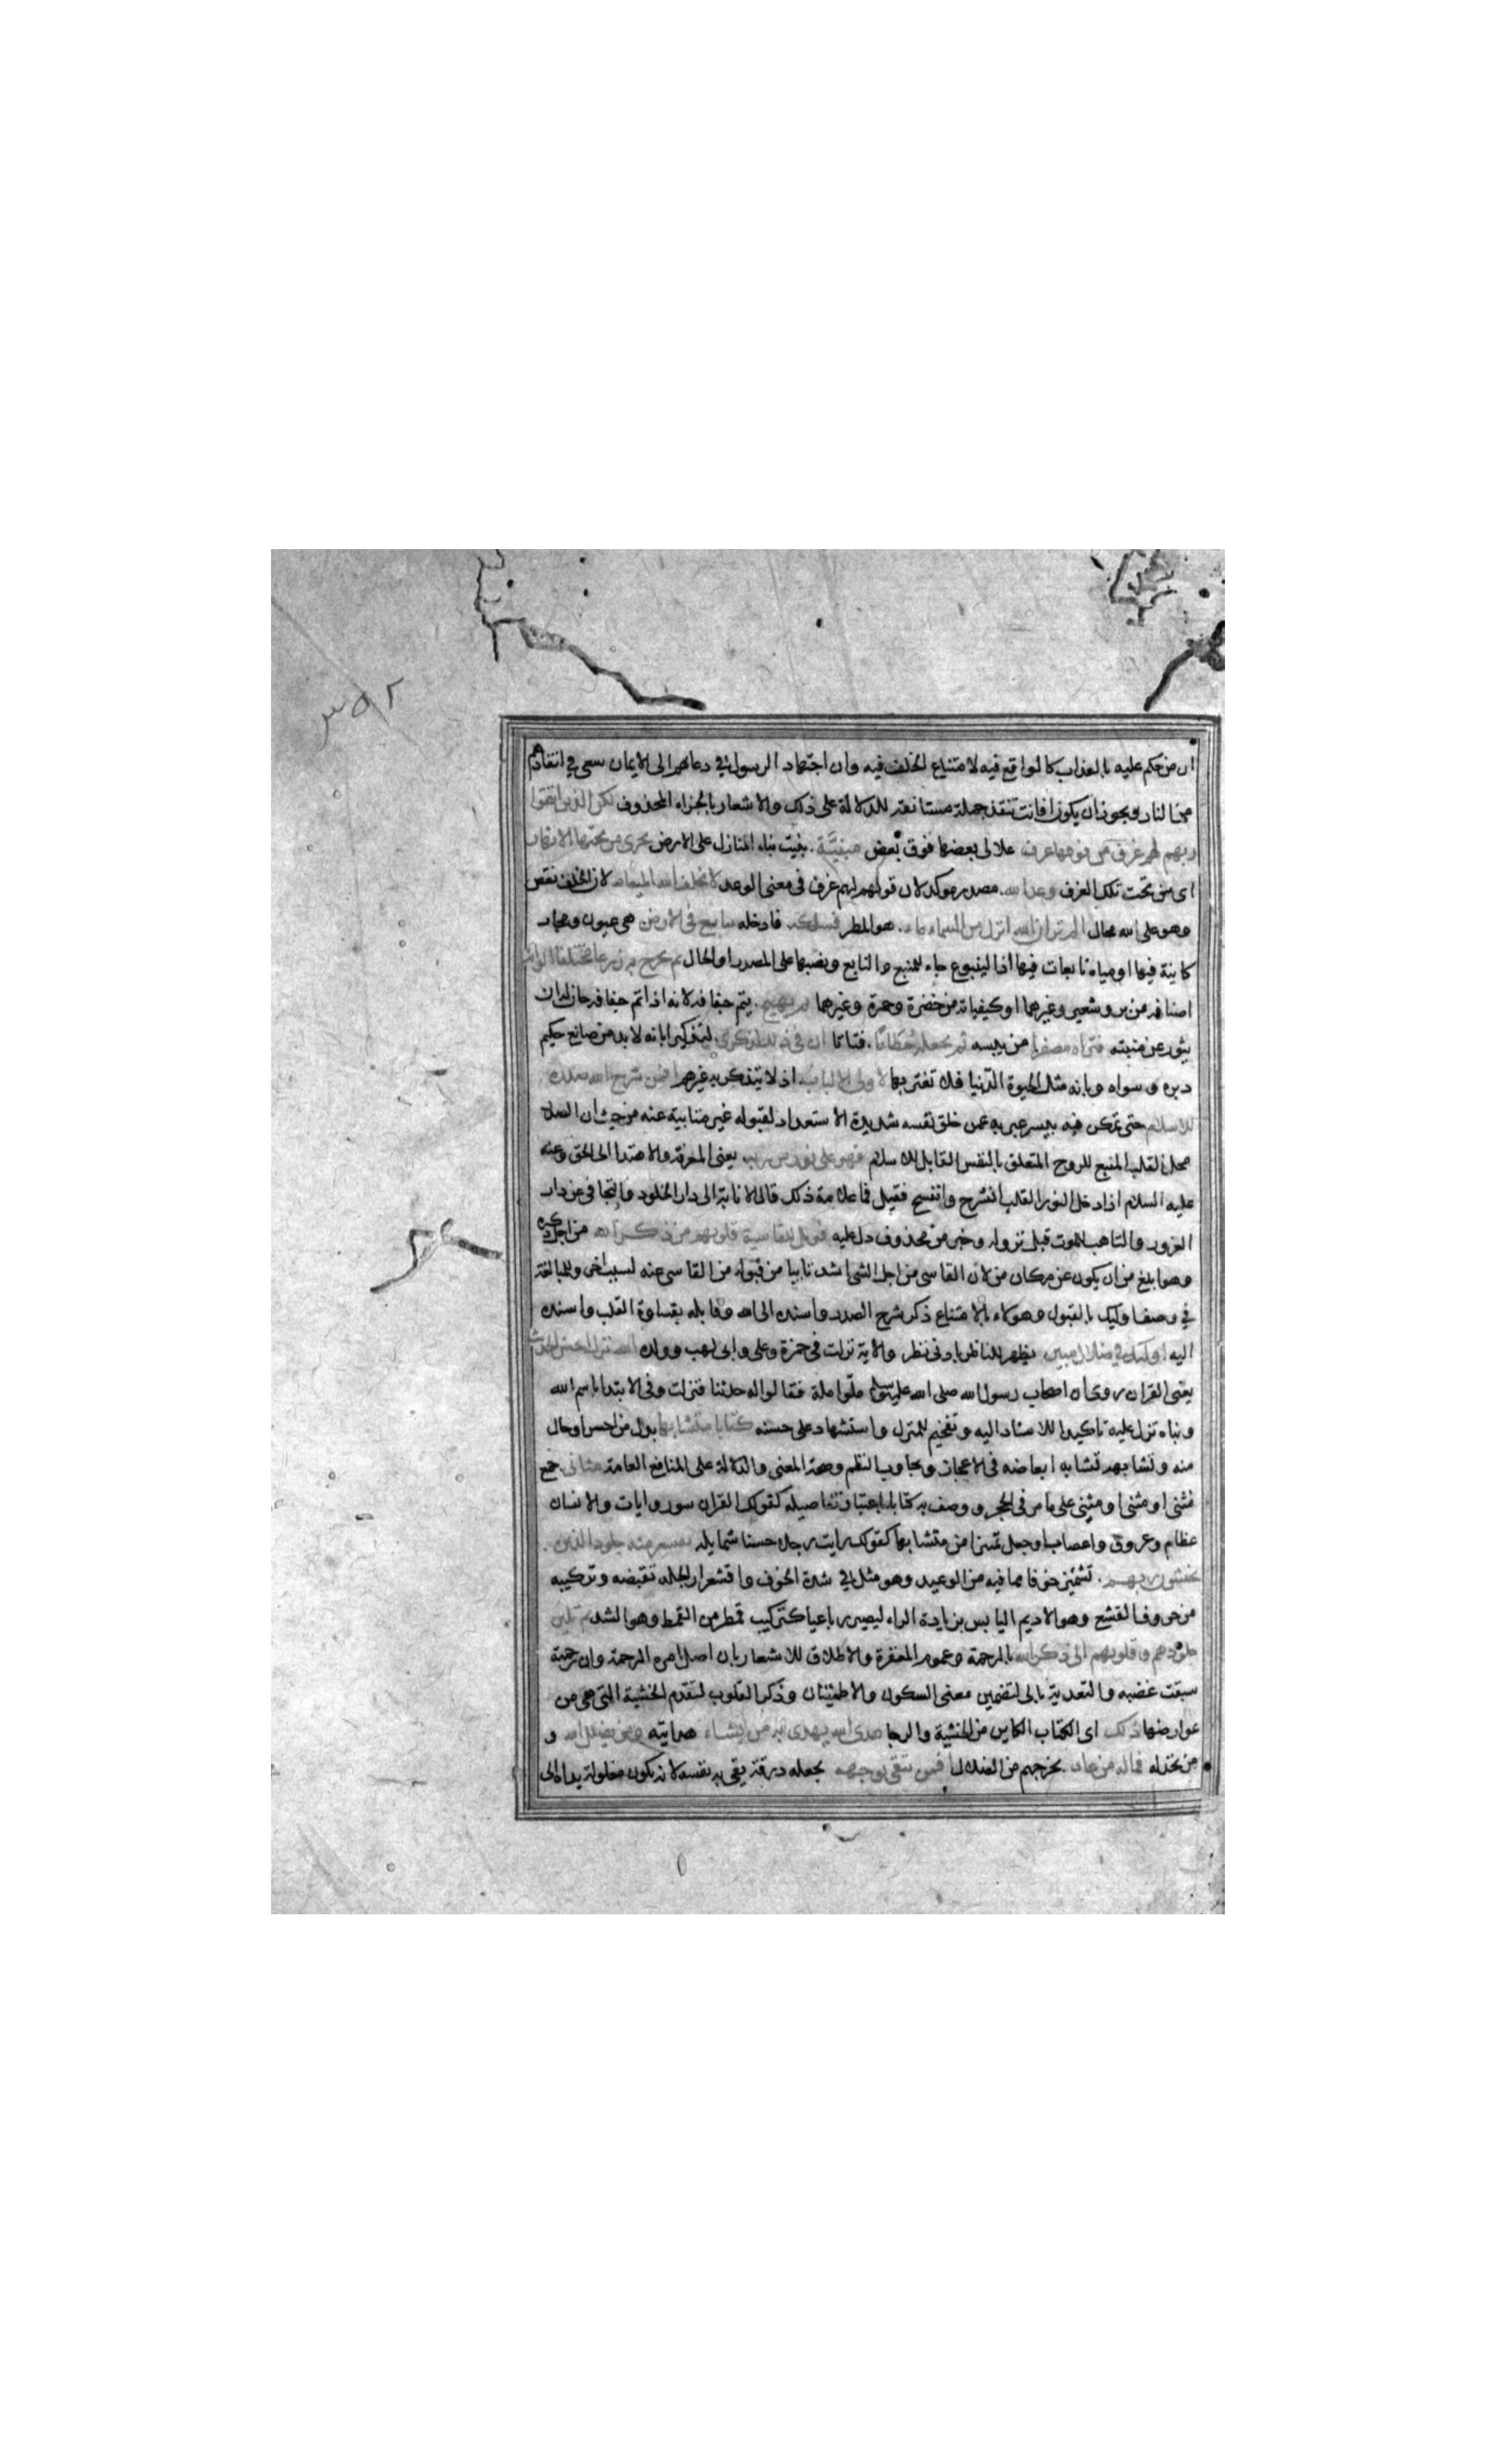 ٣٥٢
ان من حكم عليه بالعذاب كالواقع فيه لامتناع الخلف فيه وان اجتهاد الرسول في دعائهم الى الايمان سعى في انقاذهم
من النار ويجوز ان يكون افانت تنقذ جملة مستانفة للدلالة على ذلك والاشعار بالجزاء المحذوف لكن الذين اتقوا
ربهم لهم غرف من فوقها غرف علالى بعضها فوق بعض مبنيّة. بنيت بناء المنازل على الارض تجرى من تحتها الانهار
اى من تحت تلك الغرف وعد الله. مصدر موكد لان قوله لهم غرف في معنى الوعد لا يخلف الله الميعاد لان الخلف نقص
وهو على الله محال الم تر ان الله انزل من السماء ماء. هو المطر فسلكه. فادخله ينابيع في الارض هى عيون ومجار
كاينة فيها او مياه نابعات فيها اذ الينبوع جاء للمنبع والنابع ونصبها على المصدر او الحال ثم يخرج به زرعا مختلفا الوانه
اصنافه من بر وشعير وغيرهما او كيفياته من خضرة وحمرة وغيرهما ثم يهيج. يتم جفافه لانه اذا تم جفافه حان له ان
يثور عن منبته فتراه مصفرا من يبسه ثم يجعله حُطَامًا. فتاتا ان في ذلك لذكرى. لتذكيرا بانه لا بد من صانع حكيم
دبره وسواه وبانه مثل الحيوة الدّنيا فلا تغتر بها لاولى الالباب. اذ لا يتذكر به غيرهم افمن شرح الله صدره
للاسلام حتى تمكن فيه بيسر عبر به عمن خلق نفسه شديدة الاستعداد لقبوله غير متابية عنه من حيث ان الصدر
محل القلب المنبع للروح المتعلق بالنفس القابل للاسلام فهو على نور من ربه. يعنى المعرفة والاهتدا الى الحق وعنه
عليه السلام اذا دخل النور القلب انشرح وانفسح فقيل فما علامة ذلك قال الانابة الى دار الخلود والتجافى عن دار
الغرور والتاهب للموت قبل نزوله وخبر من محذوف دل عليه فويل للقاسية قلوبهم من ذكر الله من اجل ذكره
وهو ابلغ من ان يكون عن مكان من لان القاسى من اجل الشى اشد تابيا من قبوله من القاسى عنه لسبب اخر وللمبالغة
في وصف اوليك بالقبول وهولاء بالامتناع ذكر شرح الصدر واسنده الى الله وقابله بقساوة القلب واسنده
اليه اوليك في ضلال مبين يظهر للناظر بادنى نظر والاية نزلت في حمزة وعلى وابى لهب وولده الله نزل احسن الحديث
يعنى القران روى ان اصحاب رسول الله صلى الله عليه وسلم ملّوا ملة فقالوا له حدثنا فنزلت وفى الابتدا باسم الله
وبناء نزل عليه تاكيدا للاسناد اليه وتفخيم للمنزل واستشهاد على حسنه كتابا متشابها بدل من احسن او حال
منه وتشابهه تشابه ابعاضه في الاعجاز وتجاوب النظم وصحة المعنى والدلالة على المنافع العامة مثانى. جمع
مثنى او مثنى او مثنِى على ما مر في الحجر ووصف به كتابا باعتبار تفاصيله كقولك القران سور وايات والانسان
عظام وعروق واعصاب او جعل تميزا من متشابها كقولك رايت رجلا حسنا شمايله تقشعر منه جلود الذين
يخشون ربهم. تشمئز خوفا مما فيه من الوعيد وهو مثل في شدة الخوف واقشعرار الجلد تقبضه وتركيبه
من حروف القشع وهو الاديم اليابس بزيادة الراء ليصير رباعيا كتركيب قمطر من القمط وهو الشد ثم تلين
جلودهم وقلوبهم الى ذكر الله بالرحمة وعموم المغفرة والاطلاق للاشعار بان اصل امره الرحمة وان رحمته
سبقت غضبه والتعدية بالى لتضمين معنى السكون والاطمئنان وذكر القلوب لتقدم الخشية التى هى من
عوارضها ذلك اى الكتاب او الكاين من الخشية والرجا هدى الله يهدى به من يشاء هدايته ومن يضلل الله و
من يخذله فما له من هاد. يخرجهم من الضلال افمن يتقى بوجهه يجعله درقة يقى به نفسه لانه يكون مغلولة يداه الى